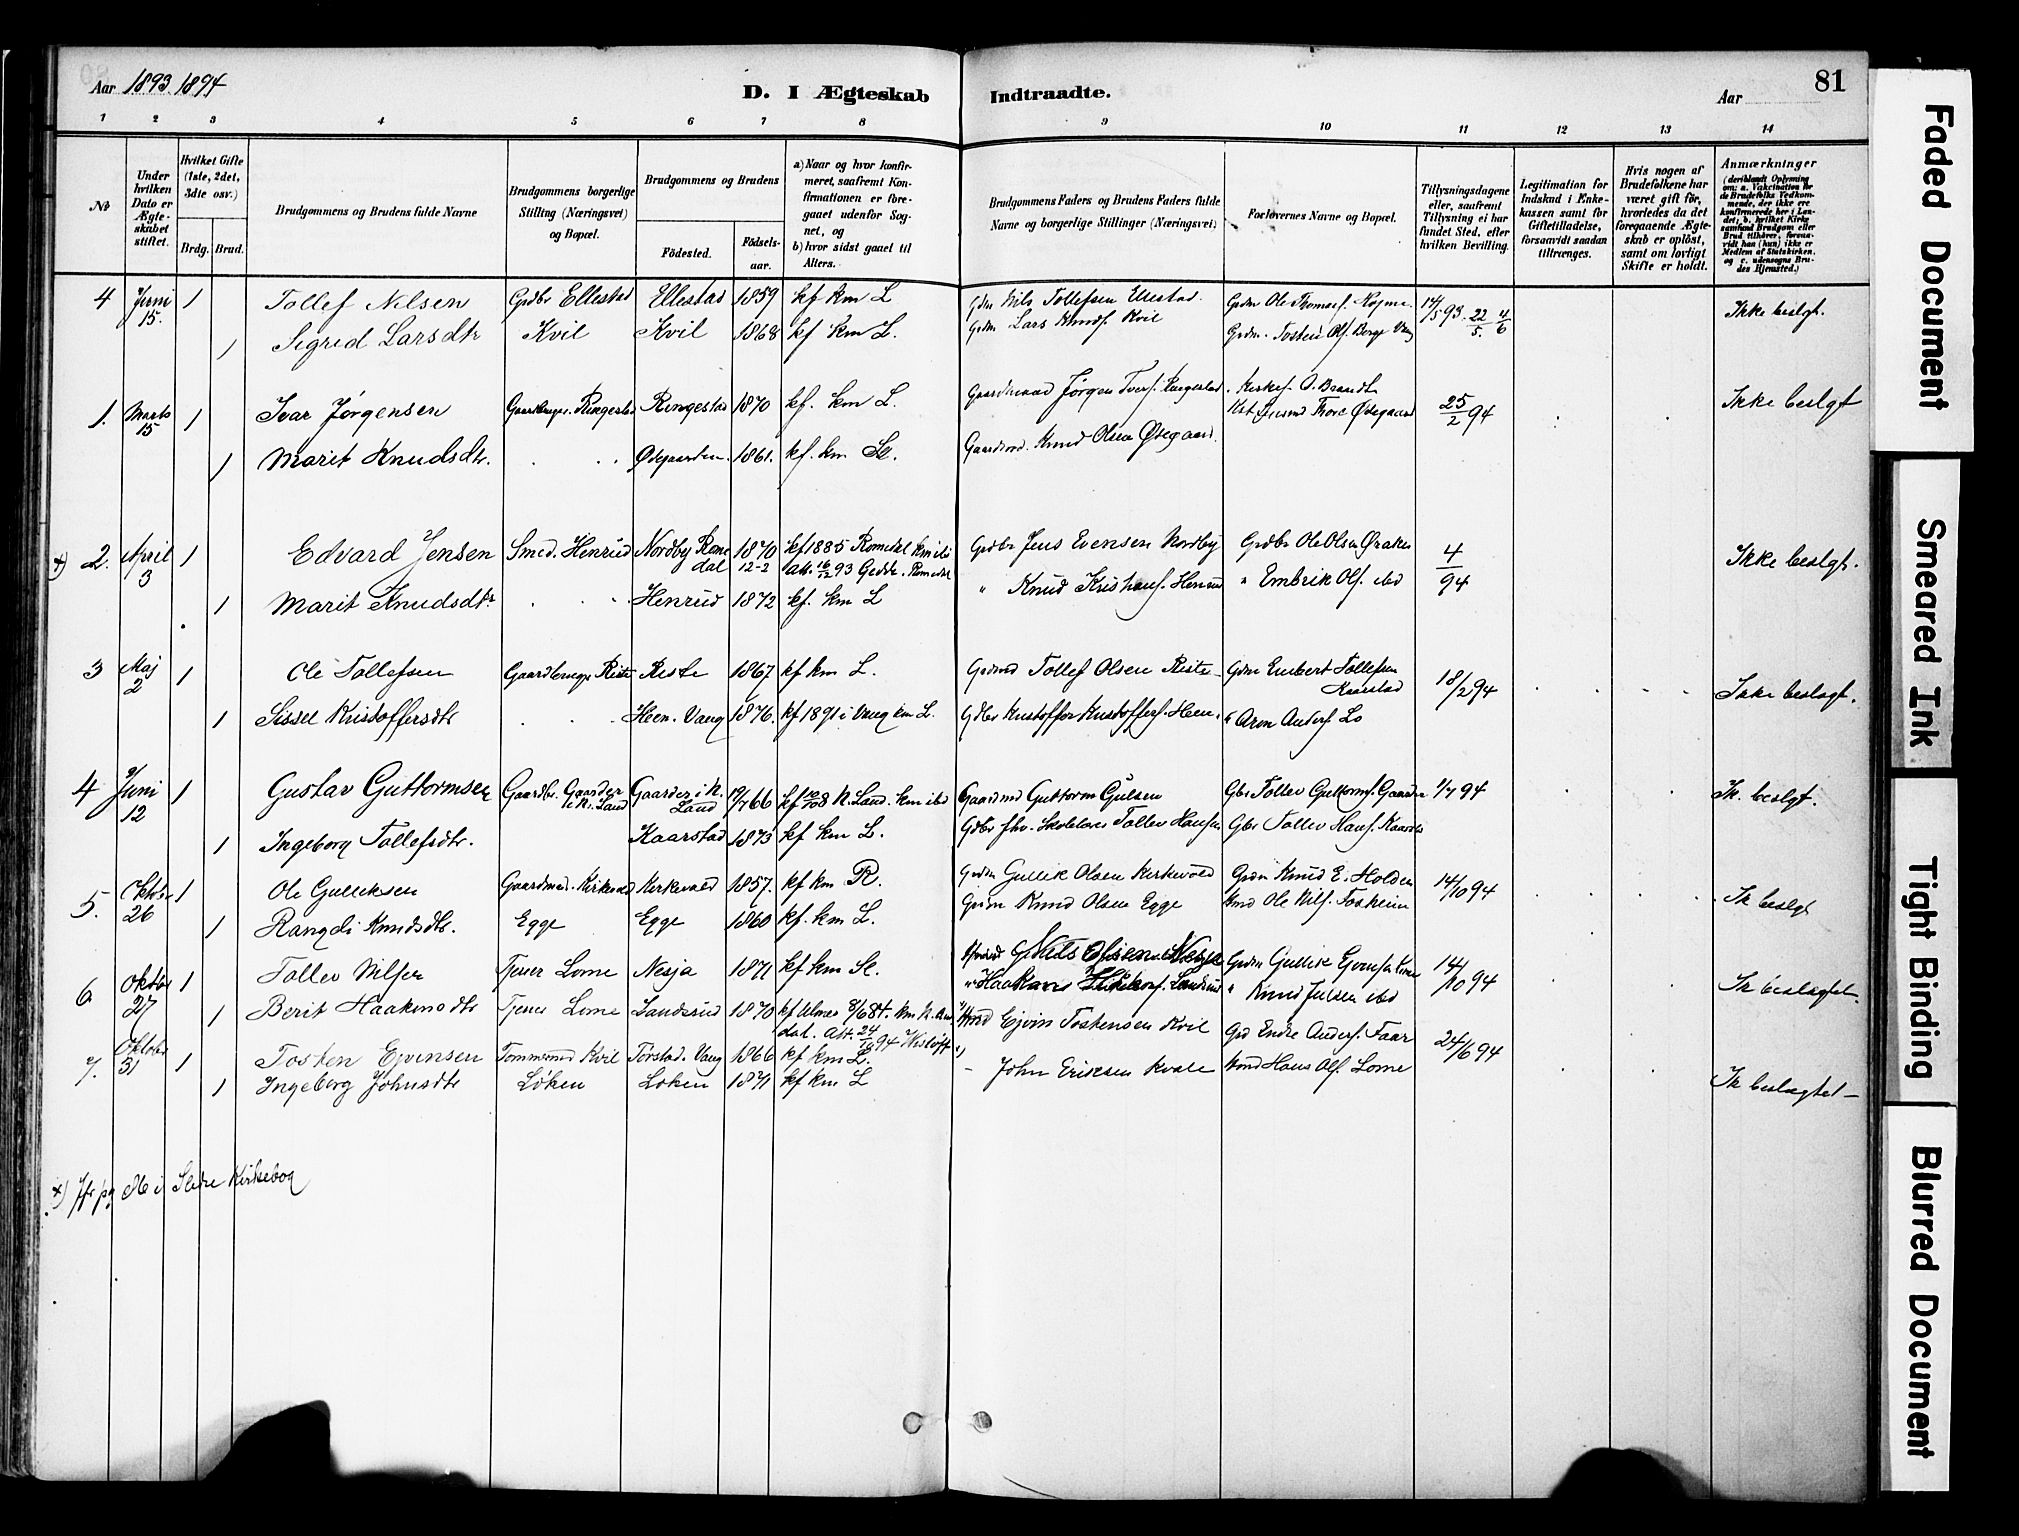 Aar 1893. 1894
D. I Ægteskab Indtraadte.
Aar
81
1 2 3 4 5 6 7 8 9 10 11 12 13 14
No
Under hvilken Dato er Ægteskabet stiftet.
Hvilket Gifte (1ste, 2det, 3die osv.)
Brdg. Brud.
Brudgommens og Brudens fulde Navne
Brudgommens borgerlige Stilling (Næringsvei) og Bopæl.
Brudgommens og Brudens
Födested.
Födsels-aar.
a) Naar og hvor konfirmeret, saafremt Konfirmationen er foregaaet udenfor Sognet, og
b) hvor sidst gaaet til Alters.
Brudgommens Faders og Brudens Faders fulde Navne og borgerlige Stillinger (Næringsvei)
Forlovernes Navne og Bopæl.
Tillysningsdagene eller, saafremt Tillysning ei har fundet Sted, efter hvilken Bevilling.
Legitimation for Indskud i Enkekassen samt for Giftetilladelse, forsaavidt saadan tiltrænges.
Hvis nogen af Brudefolkene har været gift før, hvorledes da det foregaaende Ægteskab er oplöst, samt om lovligt Skifte er holdt.
Anmærkninger (deriblandt Oplysning om: a. Vakcination for de Brudefolks Vedkommende, der ikke ere konfirmerede her i Landet; b. hvilket Kirkesamfund Brudgom eller Brud tilhörer, forsaavidt han (hun) ikke er Medlem af Statskirken, og c. udensogns Brudes Hjemsted.)
4 Juni 15. 1 Tollef Nilsen Grdbr Ellestad Ellestad 1859 kf km L Grdm Nils Tollefsen Ellestad. Grdm Ole Thomasf. 14/5 93. 22/5. 4/6 Ikke beslgt.
1 Sigrid Larsdtr Kvil Kvil 1868 kf km L. Grdm Lars Knudf. Kvil Grdm. Tosten Olf. Berge Vang
1. Marts 15 1 Ivar Jørgensen Gaardbruger. Ringestad Ringestad 1870 kf. km L. Jørgen Iverf. Ringestad. Kirkes. O. Brandt 25/2 94 Ikke beslgt
1 Marit Knudsdtr. Ødegaarden. 1861. kf. km Sl. Knud Olsen Ødegaard. Thore Ødegaard
x) 2. April 3 1 Edvard Jensen Smed. Henrud Nordby Romedal 1870 12-2 kf 1885 Romedal km ibi Att. 16/12 93 Gedde. Romedal Grdbr Jens Evensen Nordby Grdbr Ole Olsen Øraker 4/94 Ikke beslgt.
1 Marit Knudsdtr Henrud 1872 kf. km L " Knud Kristianf. Henrud " Embrik Olf. ibd
3 Maj 2 1 Ole Tollefsen Gaardbruger Riste Riste 1867 kf km L. Grdmd Tollef Olsen Riste Grdm Embert Tollefsen Kaarstad 18/2 94 Ikke beslagt.
1 Sissel Kristoffersdtr Heen. Vang 1876. kf 1891 i Vang km L. Grdbr Kristoffer Kristofferf. Heen. " Aron Anderf. Lo
4 Juni 12 1 Gustav Guttormsen Gaardbr. Gaarder i N. Land Gaarder i N. Land 19/7 66 N. Land. km ibd Gaardmd Guttorm Gulsen Gbr Tollev Guttormf. Gaarder 1/4 94 Ik. beslgt.
1 Ingeborg Tollefsdtr. Kaarstad 1873 kf km L. Grdbr fhv. Skolelærer Tollev Hansen Gbr Tollev Hansf. Kaarstad
5. Oktbr 26 1 Ole Gulliksen Gaardmd. Kirkevold Kirkevold 1857. kf km R. Grdm Gullik Olsen Kirkevold Grdm Knud E. Holden 14/10 94 Ik beslgt
1 Rangdi Knudsdtr. Egge Egge 1860 kf. km L. Grdm Knud Olsen Egge Ole Nilf. Tosheim
6 Oktbr 27 1 Tollev Nilsen Tjener Lome Nesja 1871 kf km Sl. Nils Olsen Nesja Grdm Gullik 14/10 94 Ik beslagtet.
1 Berit Haakonsdtr Tjener Lome Sandsrud 1870 kf Ulnes 8/6 84. km N. Aurdal. Att. 24/10 94 " Haakon " Knud Julsen ibd
7. Oktober 31 1 Tosten Eivinsen Tømmermd Kvil Tørstad. Vang 1866 kf km L. Ejvin Tostensen Kvil Grd Endre Anderf. Faar 24/6 94 Ik beslagtet
1 Ingeborg Johnsdtr Løken Loken 1871 kf km L John Eriksen Kvale Hans Olf. Lome
x) i Slidre Kirkebog
Faded Document
Smeared Ink
Tight Binding
Blurred Document